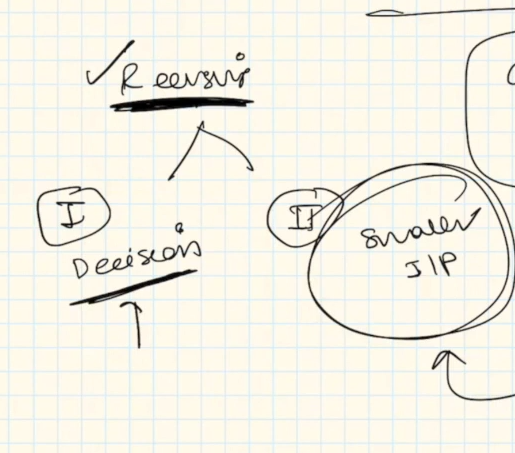 ✓ Recursion
I
II
Decision
Smaller
I/P